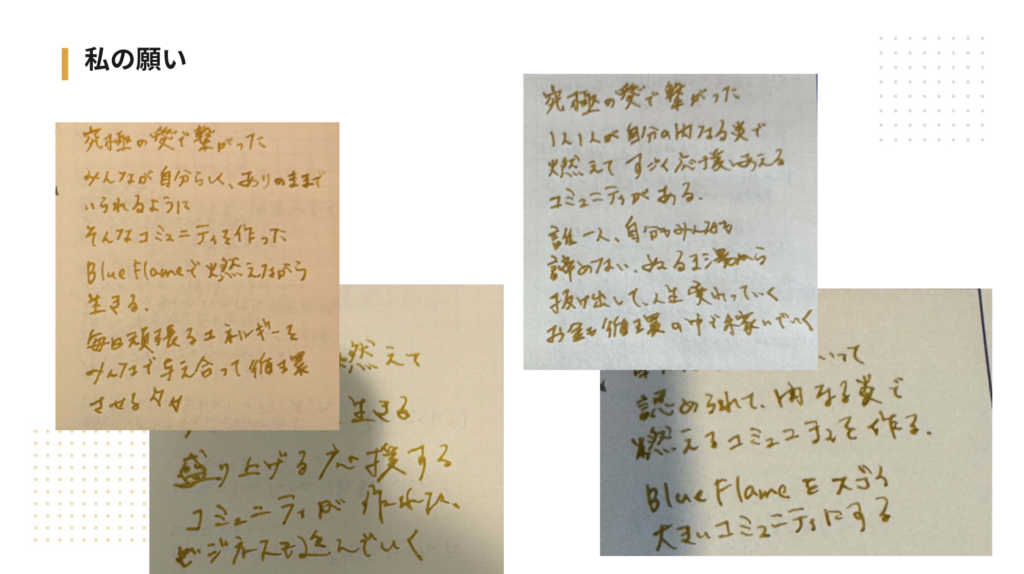 私の願い
究極の愛で繋がった
みんなが自分らしく、ありのままで
いられるように
そんなコミュニティを作った
Blue Flameで燃えながら
生きる。
毎日頑張るエネルギーを
みんなで与え合って循環
させる
燃えて
生きる
盛り上げる応援する
コミュニティが作れて、
ビジネスも進んでいく
究極の愛で繋がった
1人1人が自分の内なる炎で
燃えて すごく応援しあえる
コミュニティがある。
誰一人、自分もみんなも
諦めない、ぬるま湯から
抜け出して、人生変わっていく
お金も循環の中で稼いでいく
いって
認められて、内なる炎で
燃えるコミュニティを作る。
Blue Flameをスゴく
大きいコミュニティにする